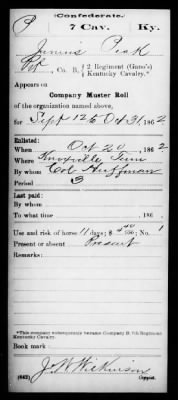 (Confederate.)
P 7 Cav. Ky.
Junius Peak
Pvt, Co. B, 2 Regiment (Gano's) Kentucky Cavalry.*
Appears on
Company Muster Roll
of the organization named above,
for Sept 12 to Oct 31, 1862
Enlisted:
When Oct 20, 1862
Where Knoxville Tenn
By whom Col Huffman
Period 3
Last paid:
By whom
To what time , 186 .
Use and risk of horse 11 days; $4 40/100; No. 1
Present or absent Present
Remarks:
*This company subsequently became Company B, 7th Regiment Kentucky Cavalry.
Book mark:
(642) J. W. Wilkinson
Copyist.